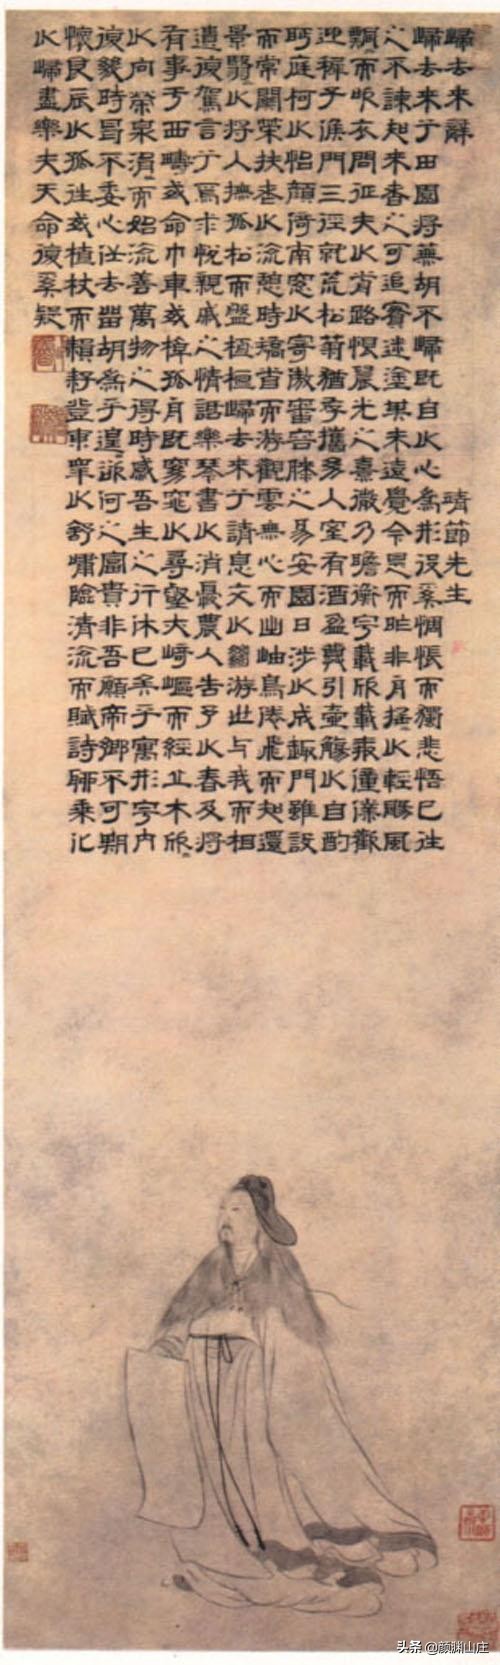 歸去來辭 靖節先生
歸去來兮田園將蕪胡不歸既自以心為形役奚惆悵而獨悲悟已往
之不諫知來者之可追實迷塗其未遠覺今是而昨非舟搖以輕颺風
飄而吹衣問征夫以前路恨晨光之熹微乃瞻衡宇載欣載奔僮僕歡
迎稚子候門三徑就荒松菊猶存攜幼入室有酒盈樽引壺觴以自酌
眄庭柯以怡顏倚南窓以寄傲審容膝之易安園日涉以成趣門雖設
而常關策扶老以流憩時矯首而游觀雲無心而出岫鳥倦飛而知還
景翳以將入撫孤松而盤桓歸去來兮請息交以絕游世与我而相
遺復駕言兮焉求悅親戚之情話樂琴書以消憂農人告予以春及將
有事于西疇或命巾車或棹孤舟既窈窕以尋壑亦崎嶇而經丘木欣
以向榮泉涓而始流善萬物之得時感吾生之行休已矣乎寓形宇內
復幾時曷不委心任去留胡為乎遑遑何之富貴非吾願帝鄉不可期
懷良辰以孤往或植杖而耘耔登東皋以舒嘯臨清流而賦詩聊乘化
以歸盡樂夫天命復奚疑
头条 @颜渊山庄